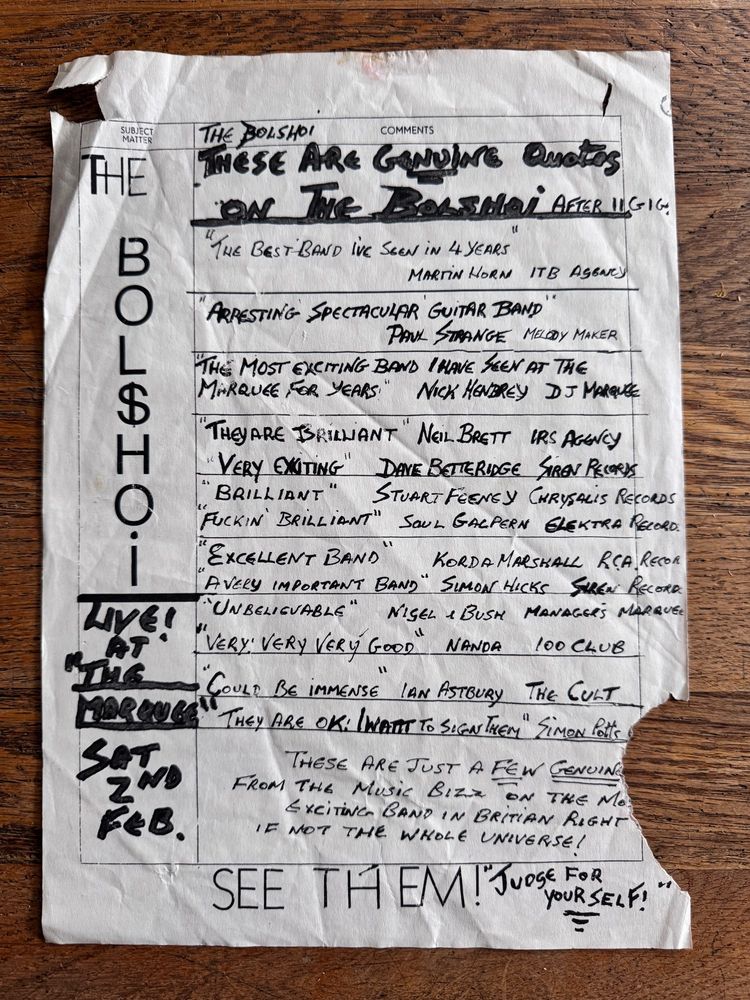 SUBJECT MATTER
THE BOLSHOI
COMMENTS
THE BOL$HOi
LIVE!
AT
"THE
MARQUEE"
SAT
2ND
FEB.
THESE ARE GENUINE Quotes
ON THE BOLSHOi AFTER 11 GIG.
"THE BEST BAND I'VE SEEN IN 4 YEARS"
MARTIN HORN ITB AGENCY
"ARRESTING SPECTACULAR GUITAR BAND"
PAUL STRANGE MELODY MAKER
"THE MOST EXCITING BAND I HAVE SEEN AT THE
MARQUEE FOR YEARS" NICK HENDREY DJ MARQUEE
"THEY ARE BRILLIANT" NEIL BRETT IRS AGENCY
"VERY EXITING" DAVE BETTERIDGE SIREN RECORDS
"BRILLIANT" STUART FEENEY CHRYSALIS RECORDS
"FUCKIN' BRILLIANT" SOUL GALPERN ELEKTRA RECORD
"EXCELLENT BAND" KORDA MARSHALL RCA RECOR
"A VERY IMPORTANT BAND" SIMON HICKS SIREN RECORD
"UNBELIEVABLE" NIGEL & BUSH MANAGERS MARQUEE
"VERY VERY VERY GOOD" NANDA 100 CLUB
"COULD BE IMMENSE" IAN ASTBURY THE CULT
"THEY ARE OK. I WANT TO SIGN THEM" SIMON Potts
THESE ARE JUST A FEW GENUINE
FROM THE MUSIC BIZZ ON THE MO
EXCITING BAND IN BRITIAN RIGHT
IF NOT THE WHOLE UNIVERSE!
SEE THEM! "JUDGE FOR
YOURSELF!"